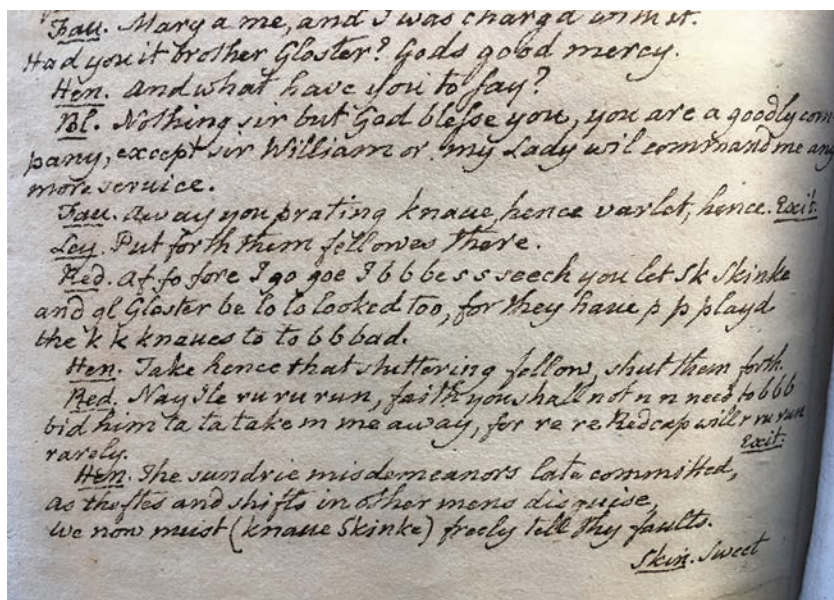 Fau. Mary a me, and I was charg'd with it.
Had you it brother Gloster? Gods good mercy.
Hen. And what have you to say?
Bl. Nothing sir but God blesse you, you are a goodly com-
pany, except sir William or my Lady wil command me any
more seruice.
Fau. Away you prating knaue, hence varlet, hence. Exit.
Ley. Put forth them fellowes there.
Red. Af fo fore I go goe I b b bes s seech you let Sk Skinke
and gl Gloster be lo lo looked too, for they haue p p playd
the k k knaues to to b b bad.
Hen. Take hence that stuttering fellow, shut them forth.
Red. Nay Ile ru ru run, faith you shall not n n need to b b b
bid him ta ta take m me away, for re re Redcap will r ru run
rarely. Exit.
Hen. The sundrie misdemeanors late committed,
As theftes and shifts in other mens disguise,
We now must (knaue Skinke) freely tell thy faults.
Skin. Sweet